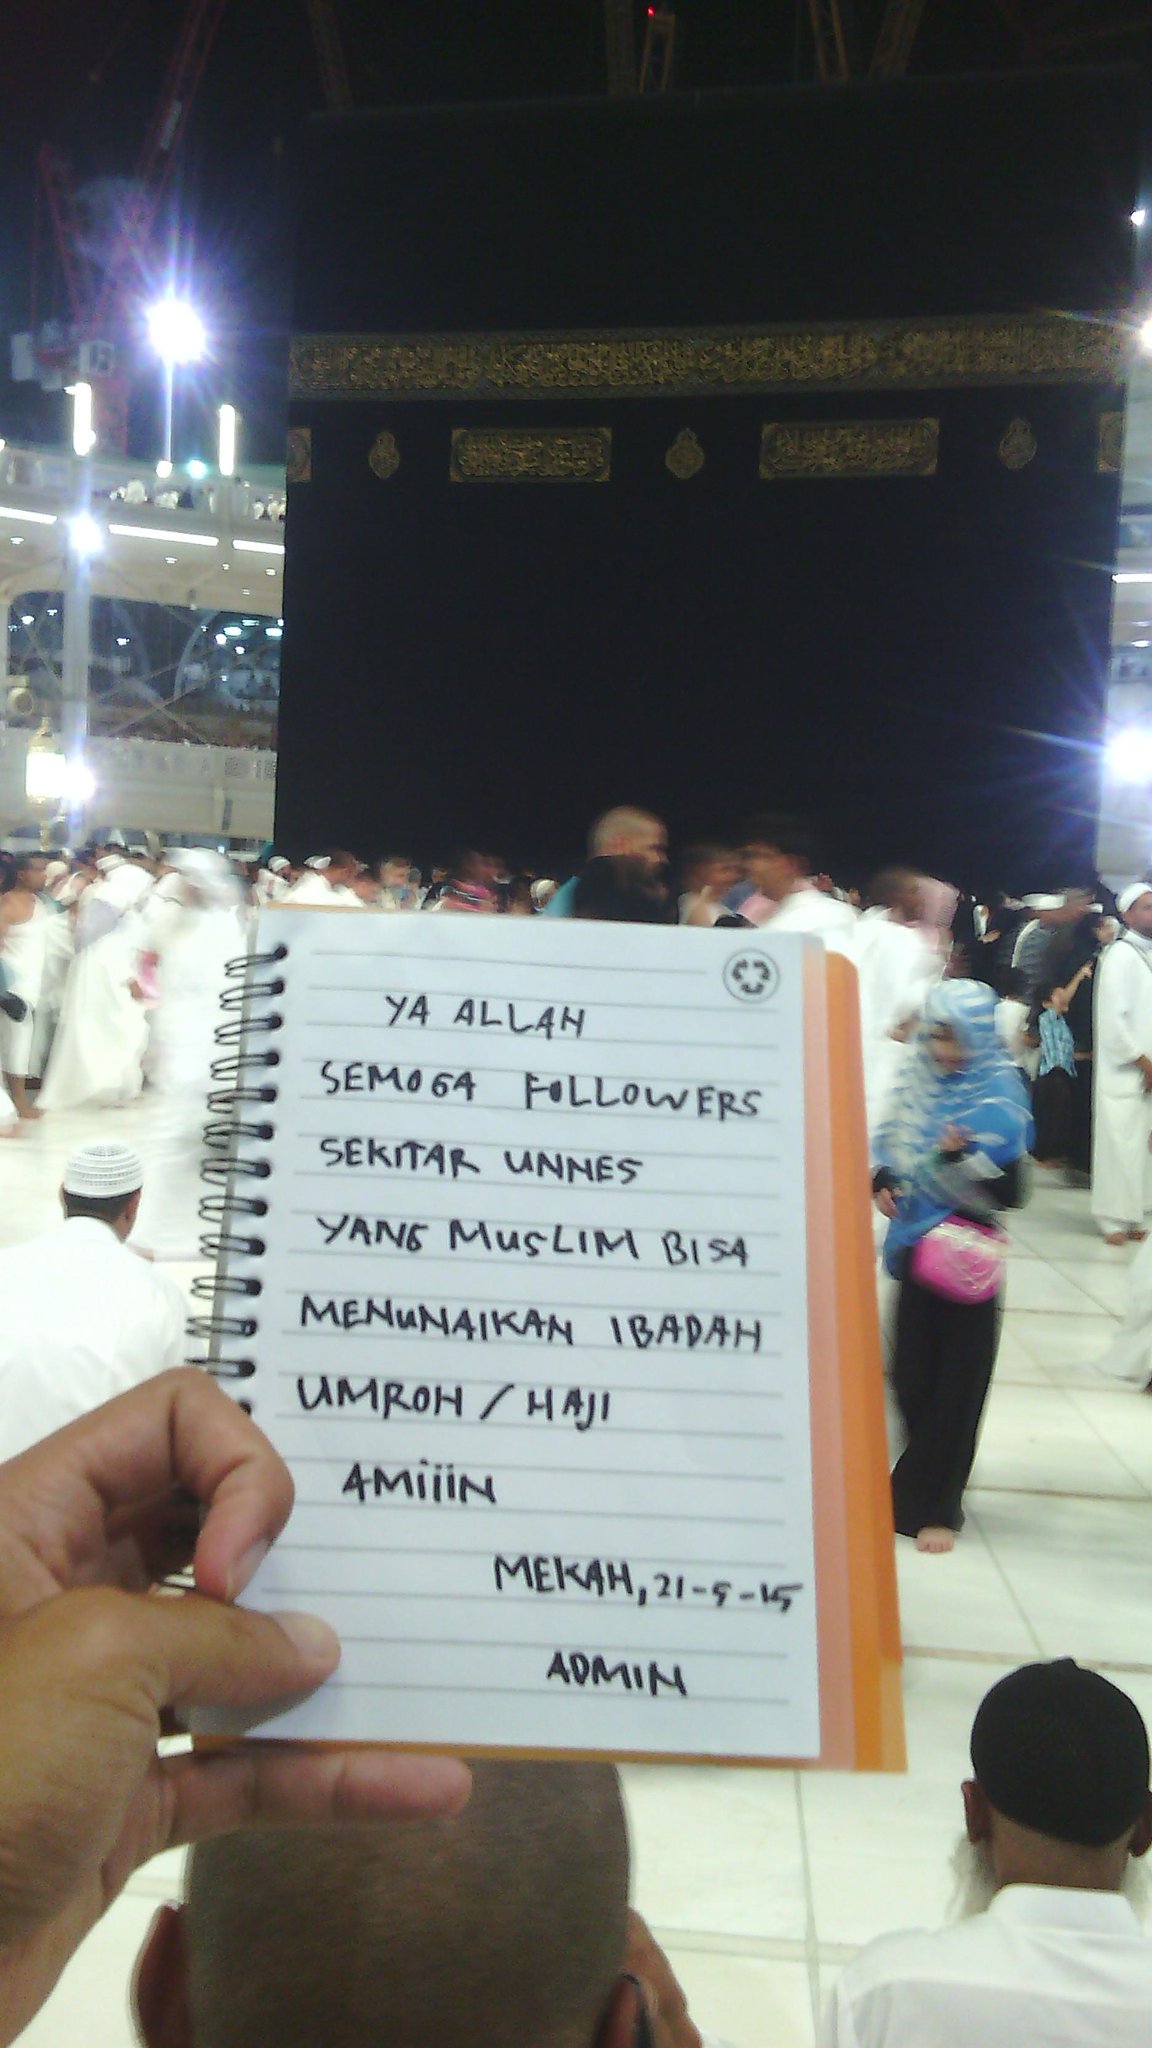 YA ALLAH
SEMOGA FOLLOWERS
SEKITAR UNNES
YANG MUSLIM BISA
MENUNAIKAN IBADAH
UMROH / HAJI
AMiiiN
MEKAH, 21-5-15
ADMIN